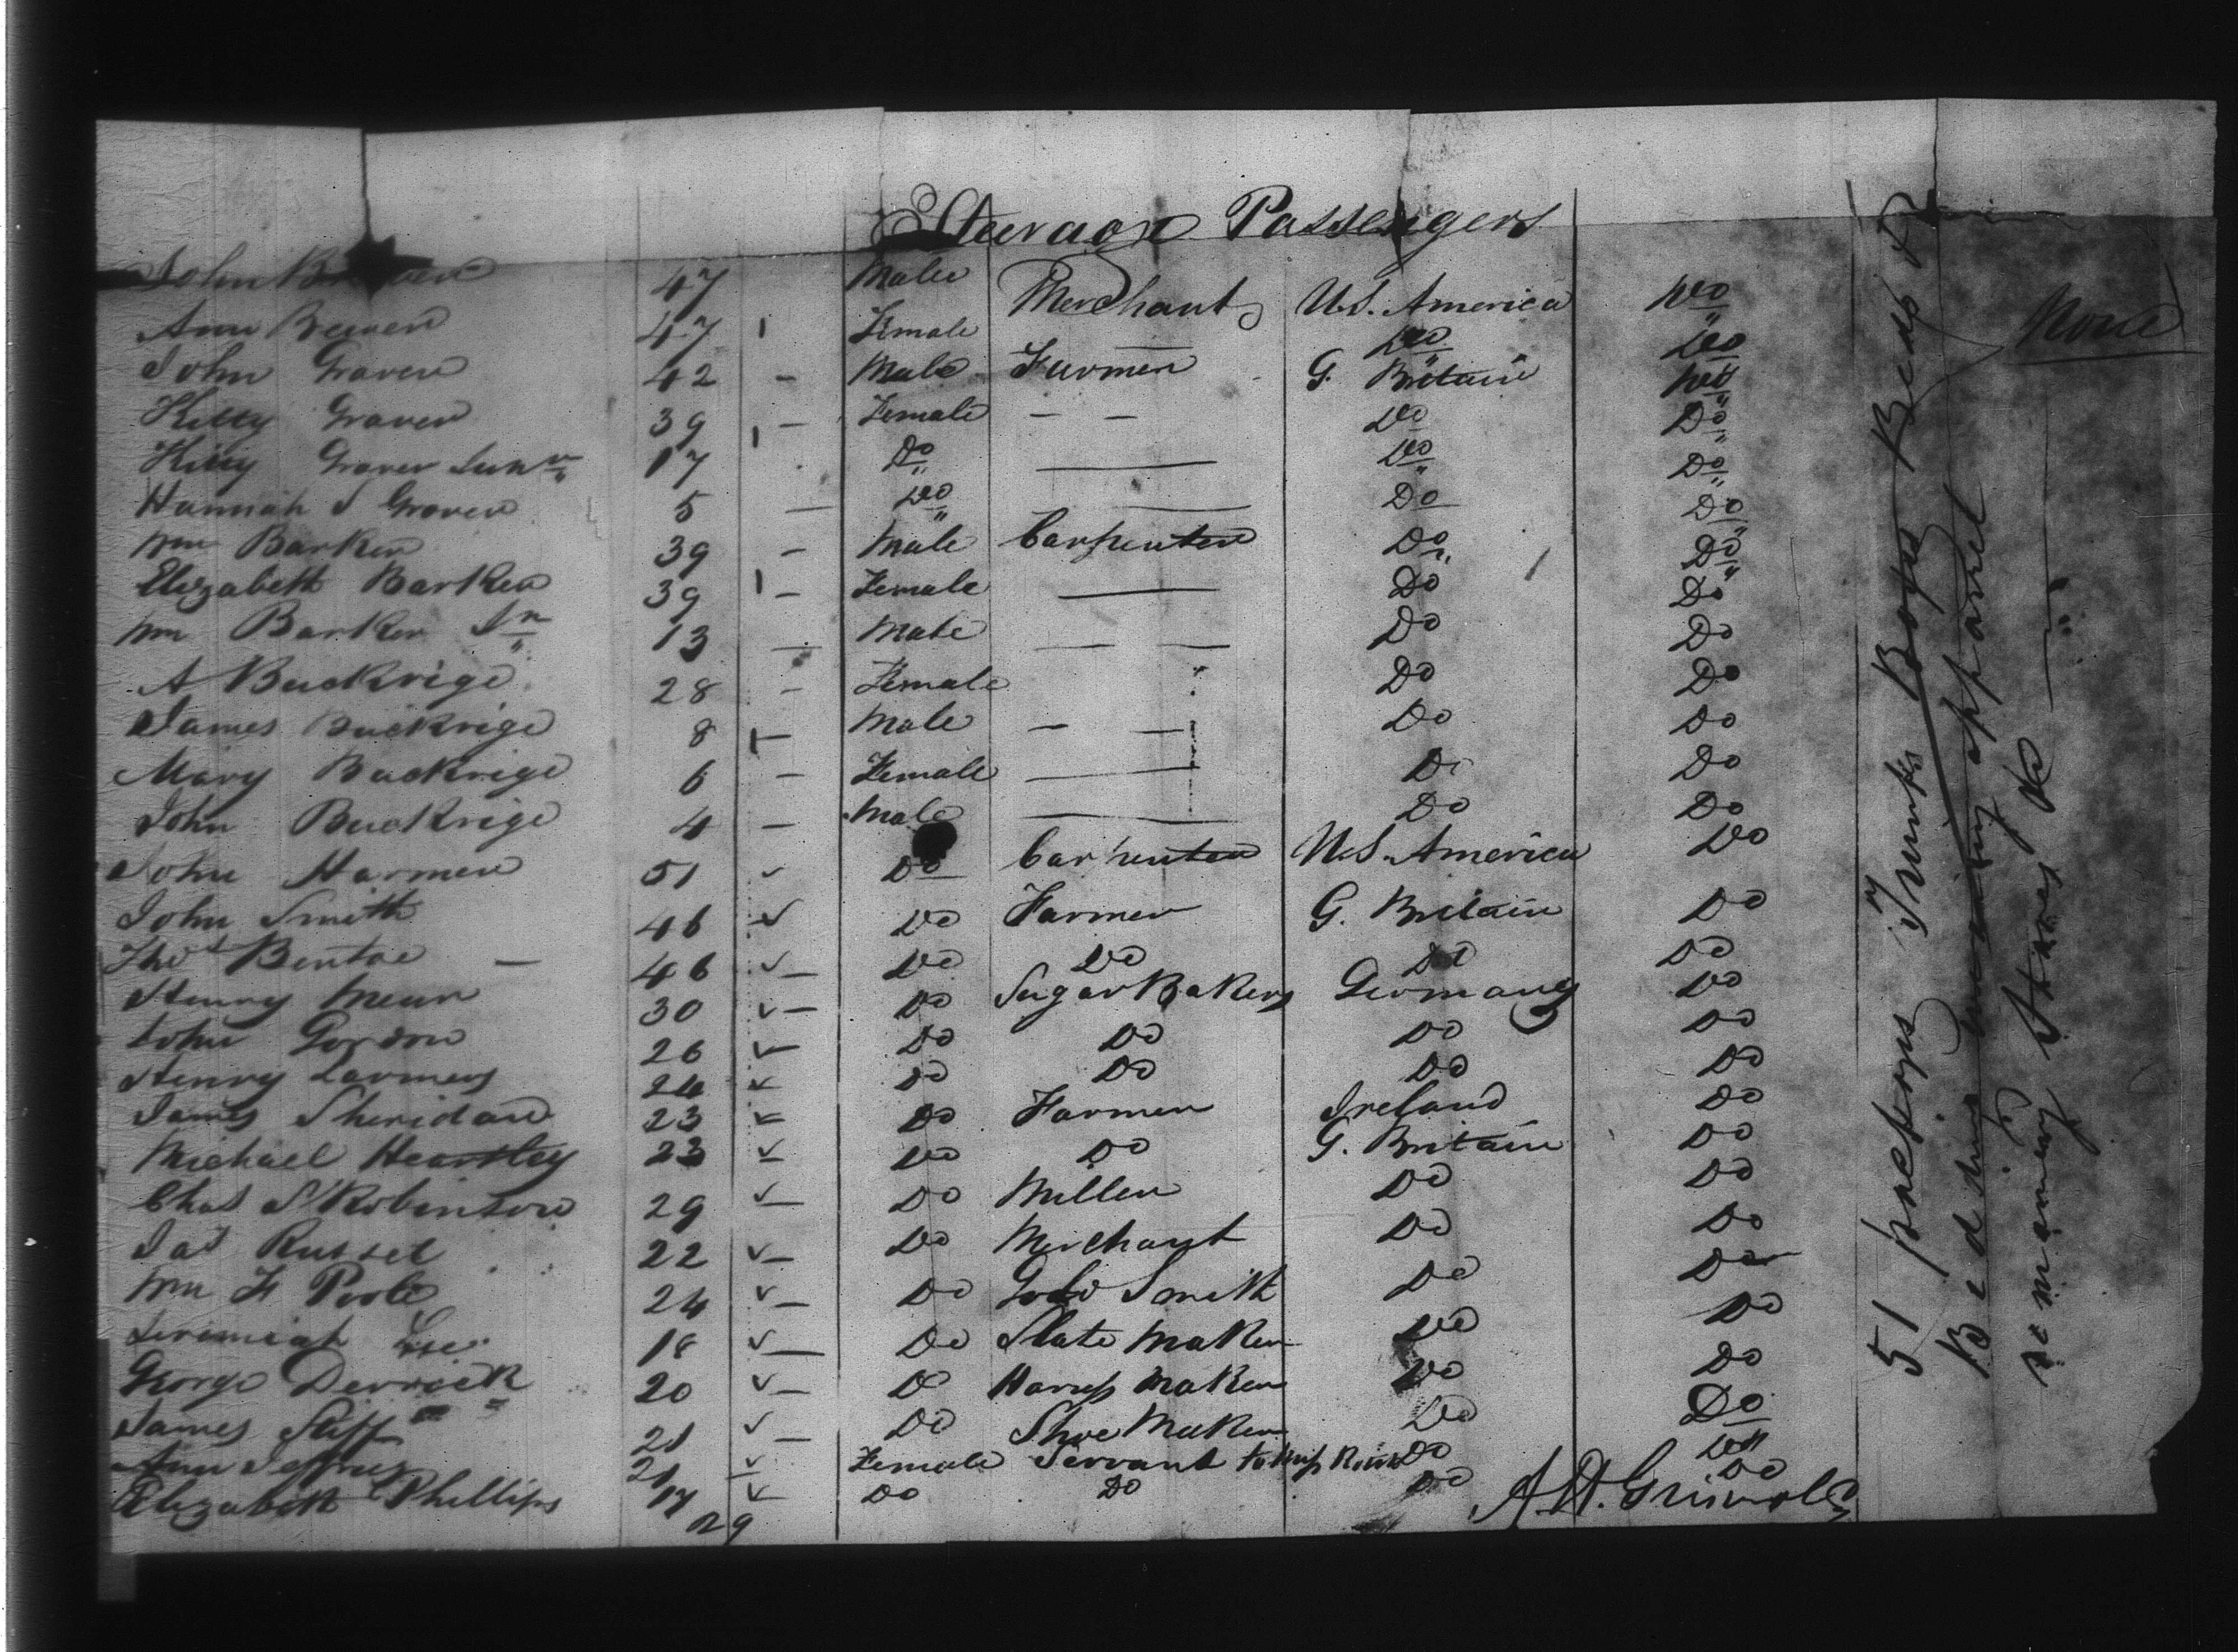 Steerage Passengers
John 47 Male Merchant U.S. America Do
Ann Brewer 47 Female — Do Do
John Graver 42 — Male Farmer G. Britain Do
Kitty Graver 39 — Female — — Do Do
Kitty Graver Junr 17 Do — Do Do
Hannah S Graver 5 — Do — Do Do
Wm Barker 39 — Male Carpenter Do Do
Elizabeth Barker 39 — Female — Do Do
Wm Barker Jr 13 — Male — — Do Do
A Buckrige 28 — Female Do Do
James Buckrige 8 — Male — — Do Do
Mary Buckrige 6 — Female — Do Do
John Buckrige 4 — Male — Do Do
John Harmer 51 Do Carpenter U.S. America Do
John Smith 46 Do Farmer G. Britain Do
Thos — 46 Do Do Do Do
Henry 30 Do Sugar Bakers Germany Do
John Gordon 26 Do Do Do Do
Henry Do Do Do Do
James Sheridan 23 Do Farmer Ireland Do
Michael Heartley 23 Do Do G. Britain Do
Chas S Robinson 29 Do Miller Do Do
Jas Russel 22 Do Merchant Do Do
Wm H Poole 24 Do Gold Smith Do Do
Jeremiah Lee 18 Do Slate Maker Do Do
George Derrick 20 Do Harness Maker Do Do
James Stiff 21 Do Shoe Maker Do Do
Ann Jeffries 21 Female Servant to Miss Do Do
Elizabeth Phillips 17 Do Do Do Do
29
A. H. Griswold
51 packages Trunks Boxes Beds &
Bedding wearing apparel
remaining Stores &c — "
None